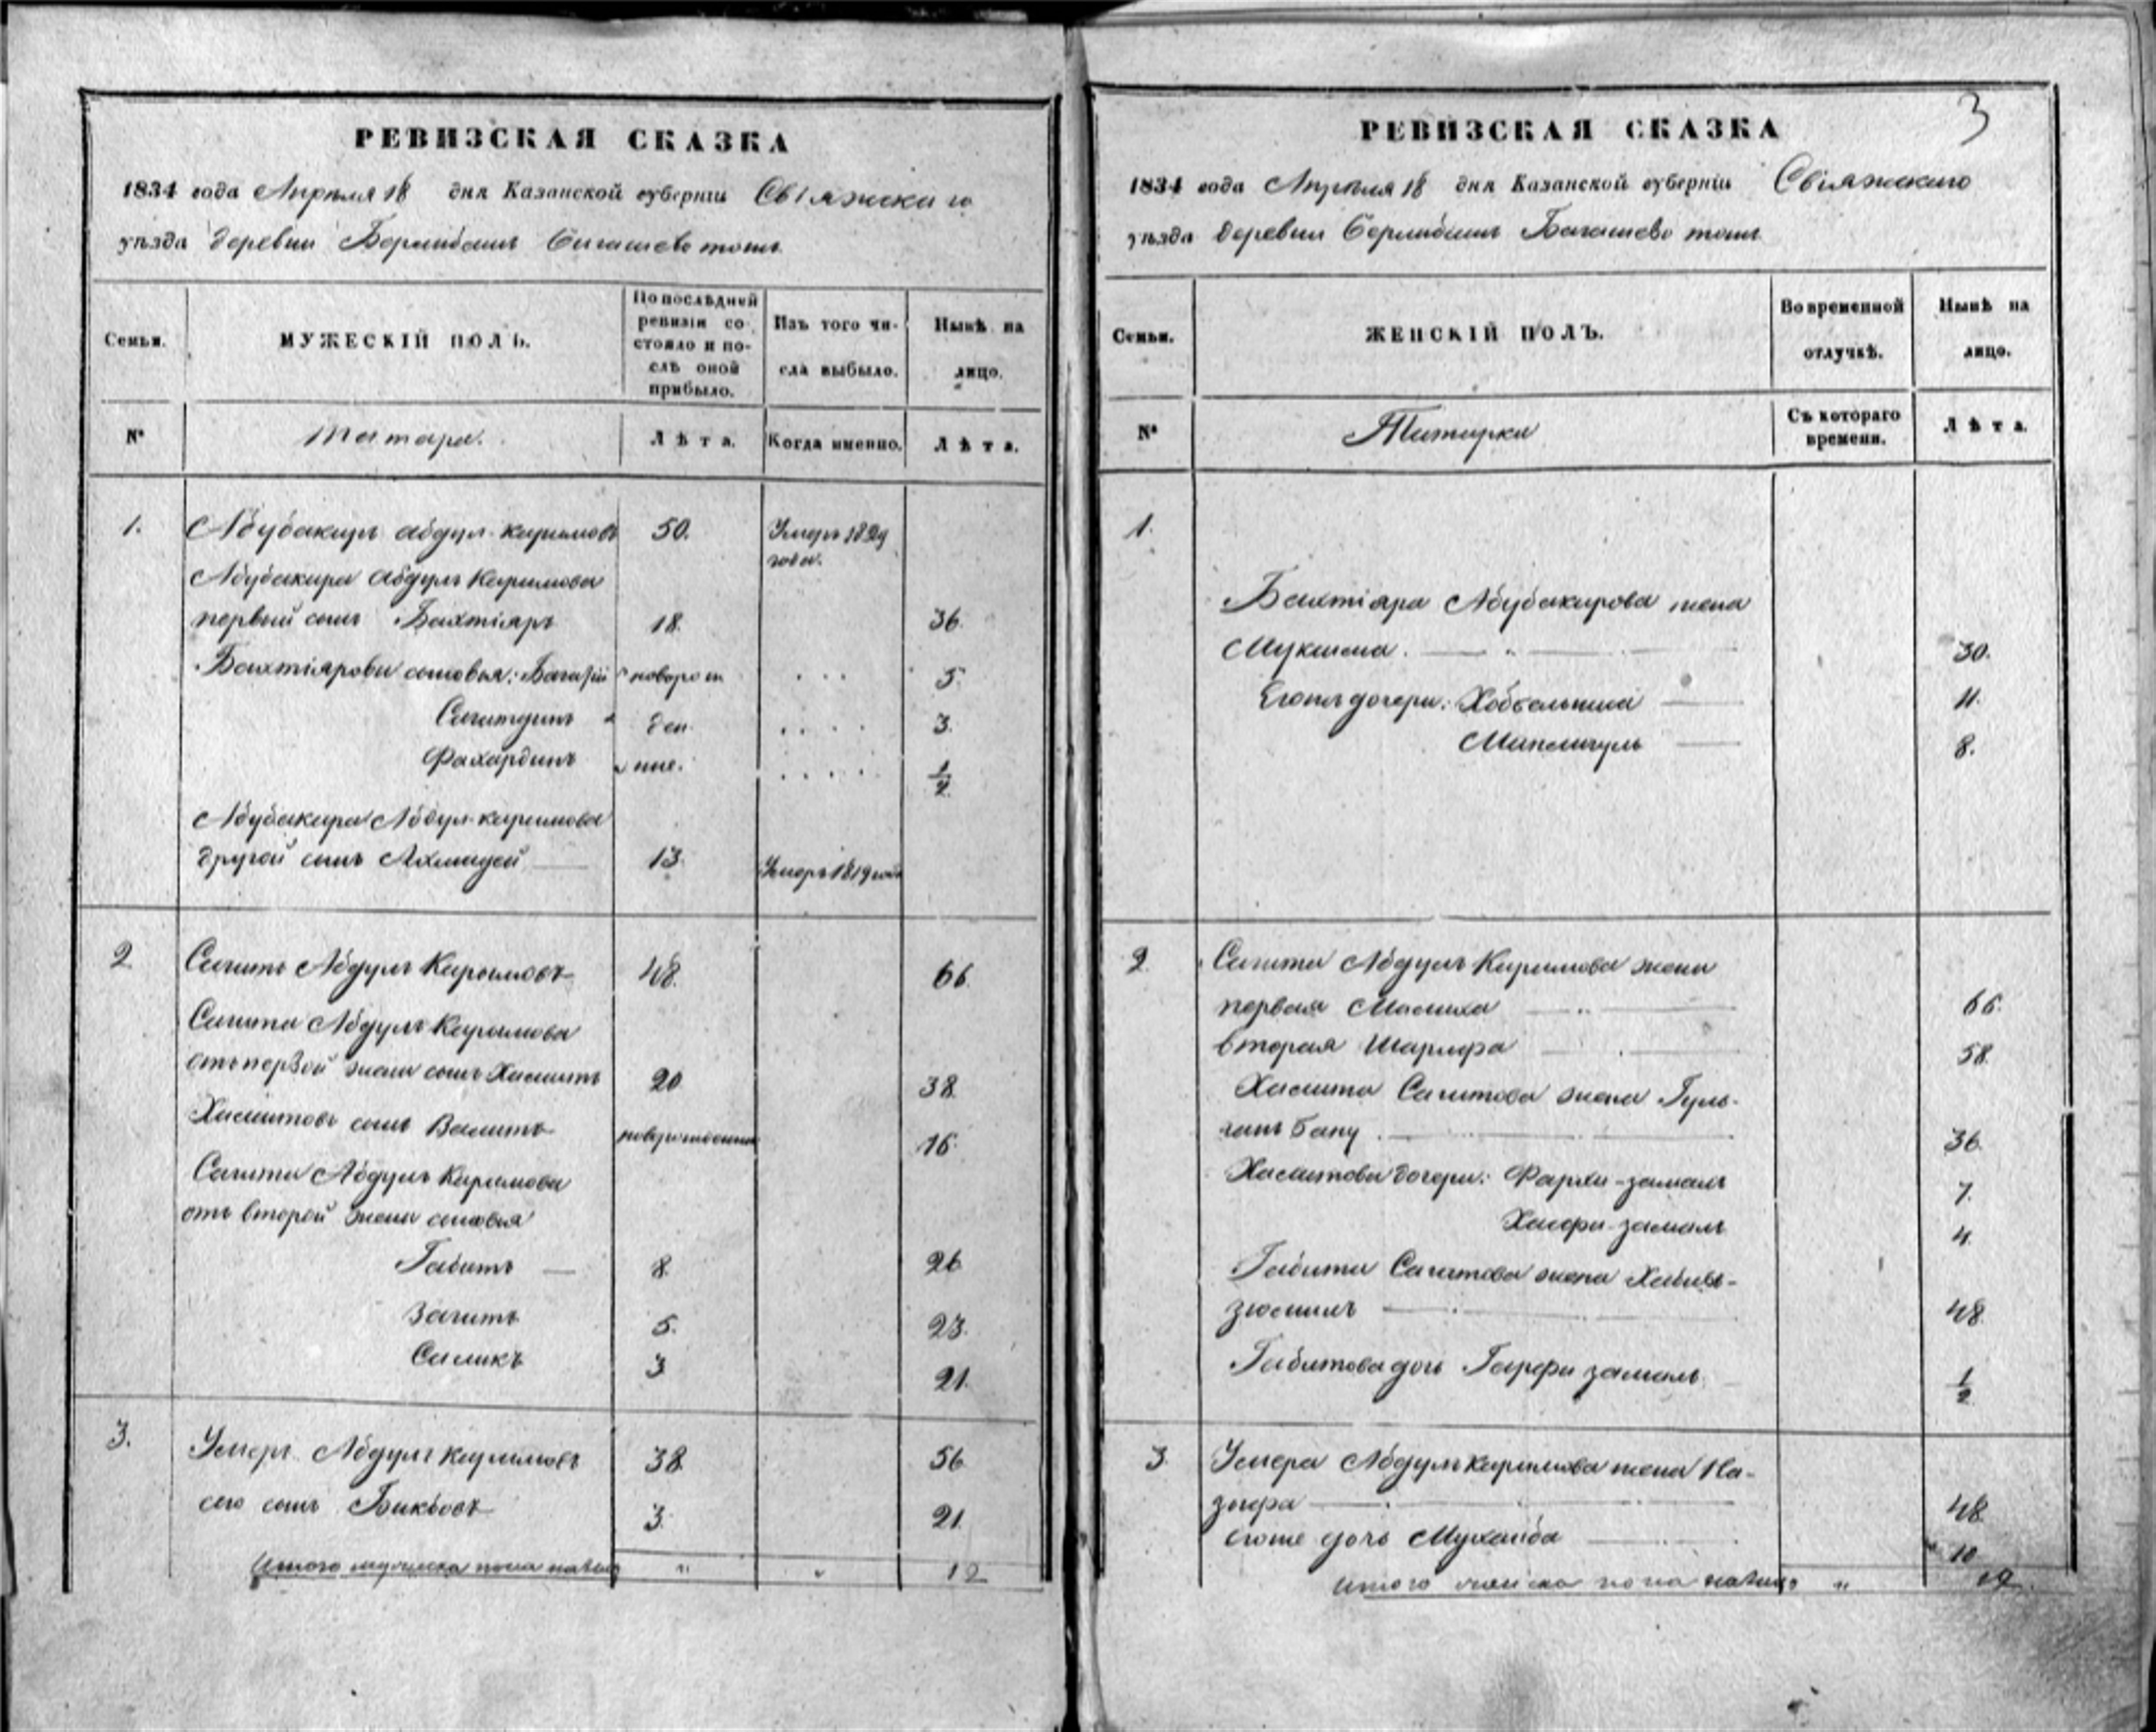 РЕВИЗСКАЯ СКАЗКА
1834 года Апреля 18 дня Казанской губерніи Свіяжскаго
уѣзда деревни Бурминбашъ тожъ
Семьи.
МУЖЕСКІЙ ПОЛЪ.
По послѣдней ревизіи состояло и послѣ оной прибыло.
Изъ того числа выбыло.
Нынѣ на лицо.
№
Татара.
Лѣта.
Когда именно.
Лѣта.
1. Абубакиръ Абдул-каримовъ 50. Умеръ 1829 года.
Абубакира Абдулъ Каримова
первый сынъ Бахтіяръ 18. 36.
Бахтіярова сыновья: новорож 5.
Сагитдинъ ден 3.
Фахардинъ ные. 1/2
Абубакира Абдул-каримова
другой сынъ Ахмадей 13. Умеръ 1819 года
2 Сагитъ Абдулъ Каримовъ 48. 66.
Сагита Абдулъ Каримова
отъ первой жены сынъ Хамитъ 20 38.
Хамитовъ сынъ Валитъ новорожденны 16.
Сагита Абдулъ Каримова
отъ второй жены сыновья
Габитъ 8. 26
Загитъ 5. 23.
Саликъ 3 21.
3. Умеръ Абдулъ Каримовъ 38. 56
его сынъ Бикбовъ 3. 21.
Итого мужеска пола налицо " " 12
3
РЕВИЗСКАЯ СКАЗКА
1834 года Апреля 18 дня Казанской губерніи Свіяжскаго
уѣзда деревни тожъ
Семьи.
ЖЕНСКІЙ ПОЛЪ.
Во временной отлучкѣ.
Нынѣ на лицо.
№
Татарки
Съ котораго времени.
Лѣта.
1.
Бахтіяра Абубакирова жена
30.
Егожъ дочери: 11.
8.
2. Сагита Абдулъ Каримова жена
первая Малиха 66.
вторая Шарифа 58.
Хамита Сагитова жена Гуль-
Бану 36.
Хамитова дочери: Фархи-замалъ 7.
замалъ 4.
Габита Сагитова жена Хабиб-
48.
Габитова дочь замалъ 1/2
3 Умера Абдулъ Каримова жена На-
48.
его же дочь 10
Итого женска пола налицо " 12